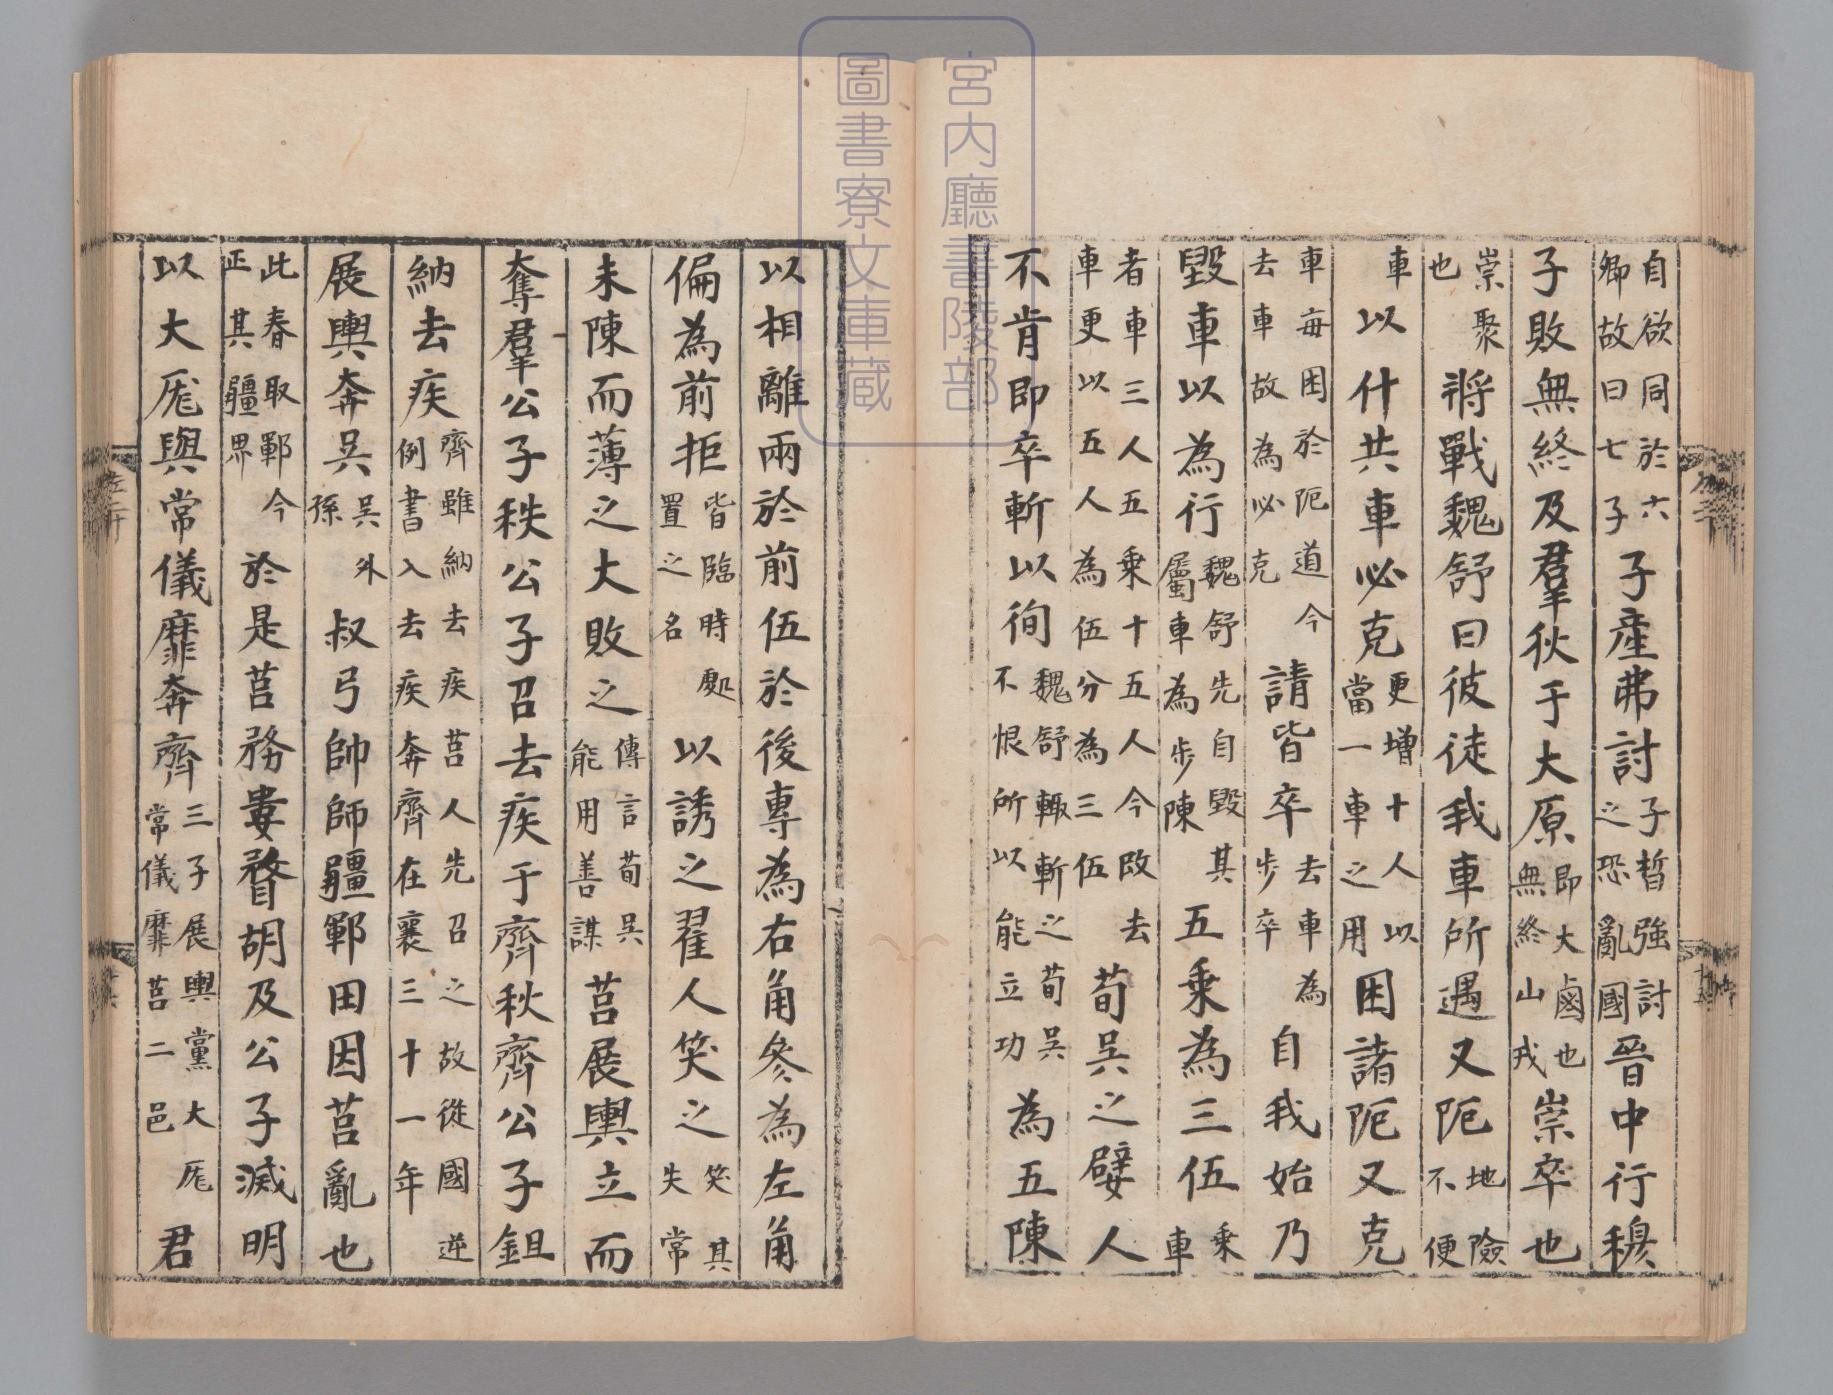 自欲同於六卿故曰七子子產弗討子晳強討之恐亂國晉中行穆
子敗無終及羣狄于大原即大鹵也無終山戎崇卒也
崇聚也將戰魏舒曰彼徒我車所遇又阨地險不便
車以什共車必克更增十人以當一車之用困諸阨又克
車每困於阨道今去車故為必克請皆卒去車為步卒自我始乃
毀車以為行魏舒先自毀其屬車為步陳五乘為三伍乘車
者車三人五乘十五人今改去車更以五人為伍分為三伍荀吳之嬖人
不肯即卒斬以徇魏舒輙斬之荀吳不恨所以能立功為五陳
以相離兩於前伍於後專為右角參為左角
偏為前拒皆臨時處置之名以誘之翟人笑之笑其失常
未陳而薄之大敗之傳言荀吳能用善謀莒展輿立而
奪羣公子秩公子召去疾于齊秋齊公子鉏
納去疾齊雖納去疾莒人先召之故從國逆例書入去疾奔齊在襄三十一年
展輿奔吳吳外孫叔弓帥師疆鄆田因莒亂也
此春取鄆今正其疆界於是莒務婁瞀胡及公子滅明
以大厖與常儀靡奔齊三子展輿黨大厖常儀靡莒二邑君
宮内廳書陵部
圖書寮文庫蔵